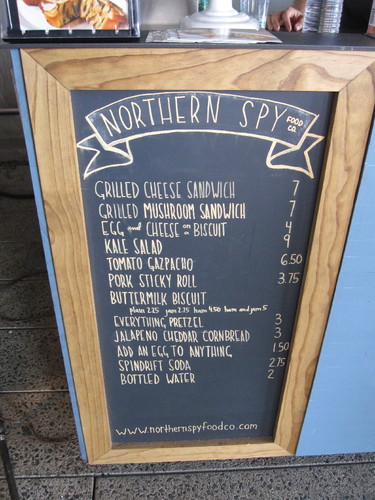 NORTHERN SPY FOOD CO.
GRILLED CHEESE SANDWICH 7
GRILLED MUSHROOM SANDWICH 7
EGG and CHEESE on a BISCUIT 4
KALE SALAD 9
TOMATO GAZPACHO 6.50
PORK STICKY ROLL 3.75
BUTTERMILK BISCUIT
plain 2.25 jam 2.75 ham 4.50 ham and jam 5
EVERYTHING PRETZEL 3
JALAPENO CHEDDAR CORNBREAD 3
ADD AN EGG TO ANYTHING 1.50
SPINDRIFT SODA 2.75
BOTTLED WATER 2
www.northernspyfoodco.com